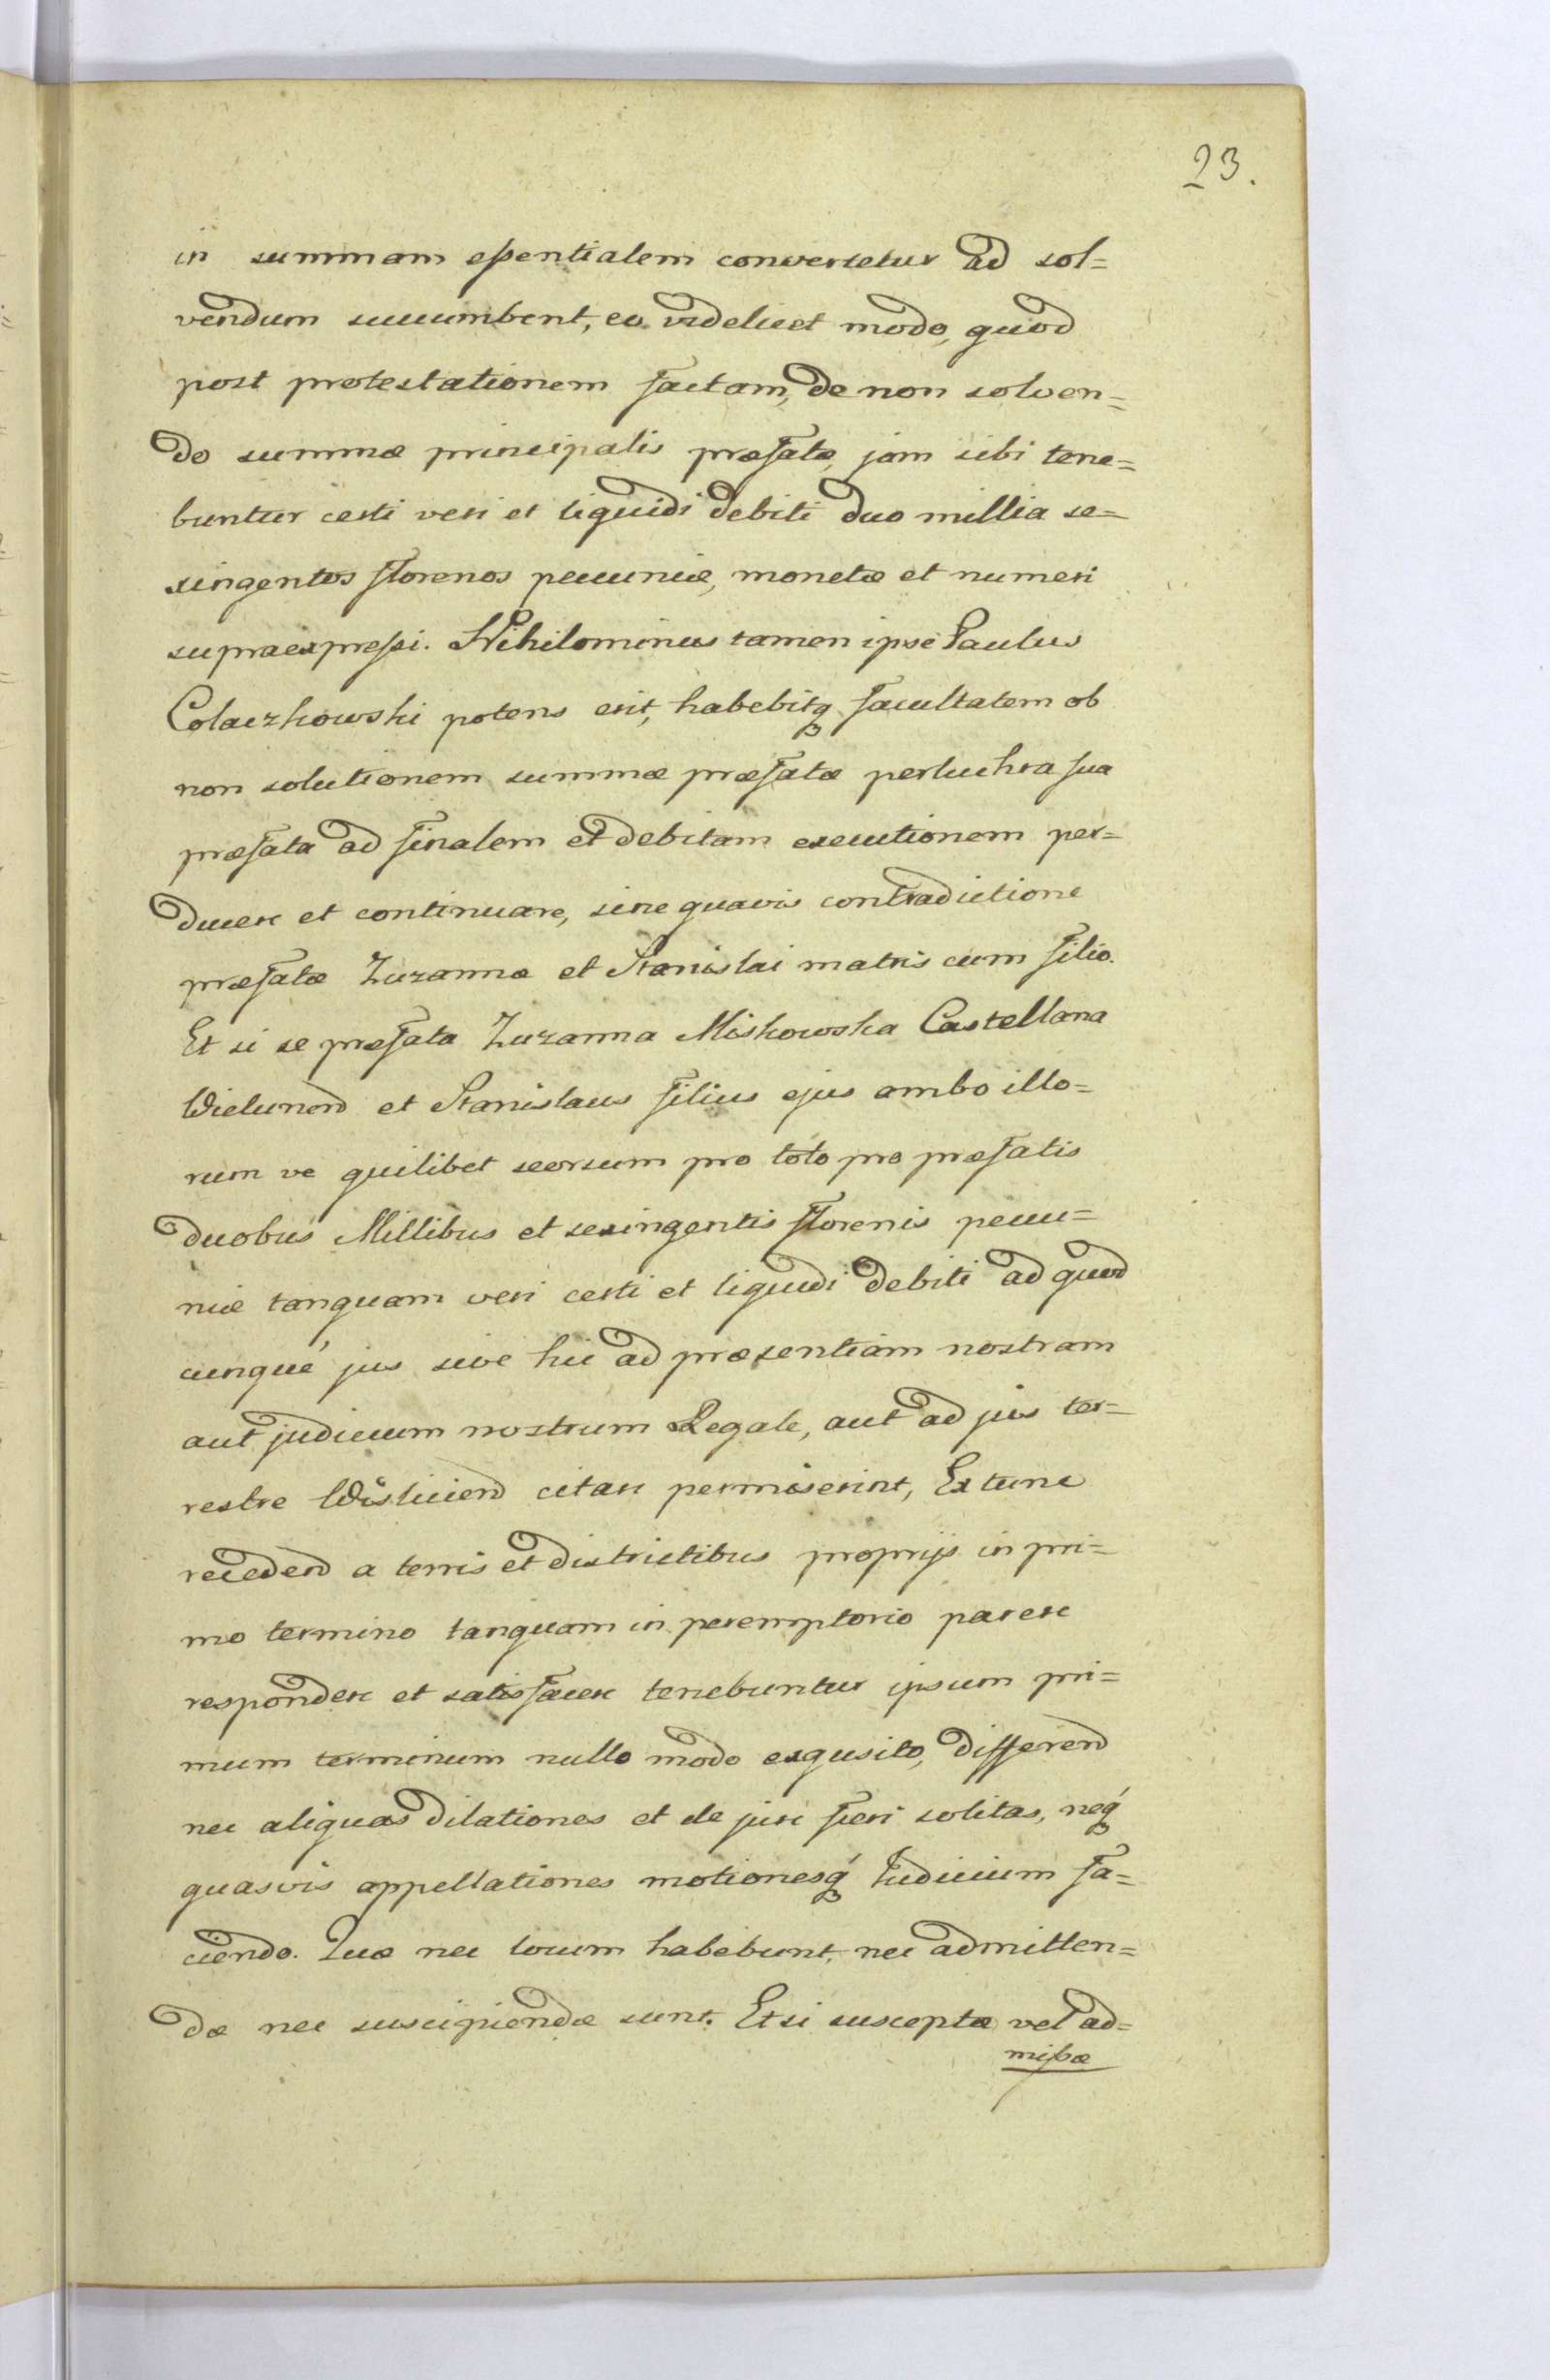 23.
in summam essentialem converteretur ad sol=
vendum succumbent, eo videlicet modo, quod
post protestationem factam, de non solven=
do summæ principalis præfatæ, jam sibi tene=
buntur certi veri et liquidi debiti duo millia se=
xingentos florenos pecuniæ, monetæ et numeri
supraexpressi. Nihilominus tamen ipse Paulus
Colaczkowski potens erit, habebitq facultatem ob
non solutionem summæ præfatæ perluchra sua
præfata ad finalem et debitam executionem per=
ducere et continuare, sine quavis contradictione
præfatæ Zuzannæ et Stanislai matris cum filio.
Et si se præfata Zuzanna Miskowska Castellana
Wielunen et Stanislaus filius ejus ambo illo=
rum ve quilibet seorsum pro toto pro præfatis
duobus Millibus et sexingentis florenis pecu=
niæ tanquam veri certi et liquidi debiti ad quod
cunque jus sive hic ad præsentiam nostram
aut judicium nostrum Regale, aut ad jus ter=
restre Wislicien citare permiserint, Extunc
receden a terris et districtibus proprijs in pri=
mo termino tanquam in peremptorio parere
respondere et satisfacere tenebuntur ipsum pri=
mum terminum nullo modo exqusito, differend
nec aliquas dilationes et de jure fieri solitas, neq́
quasvis appellationes motionesq́ Iudicium fa=
ciendo. Quæ nec locum habebunt, nec admitten=
dæ nec suscipiendæ sunt. Et si susceptæ vel ad=
missæ